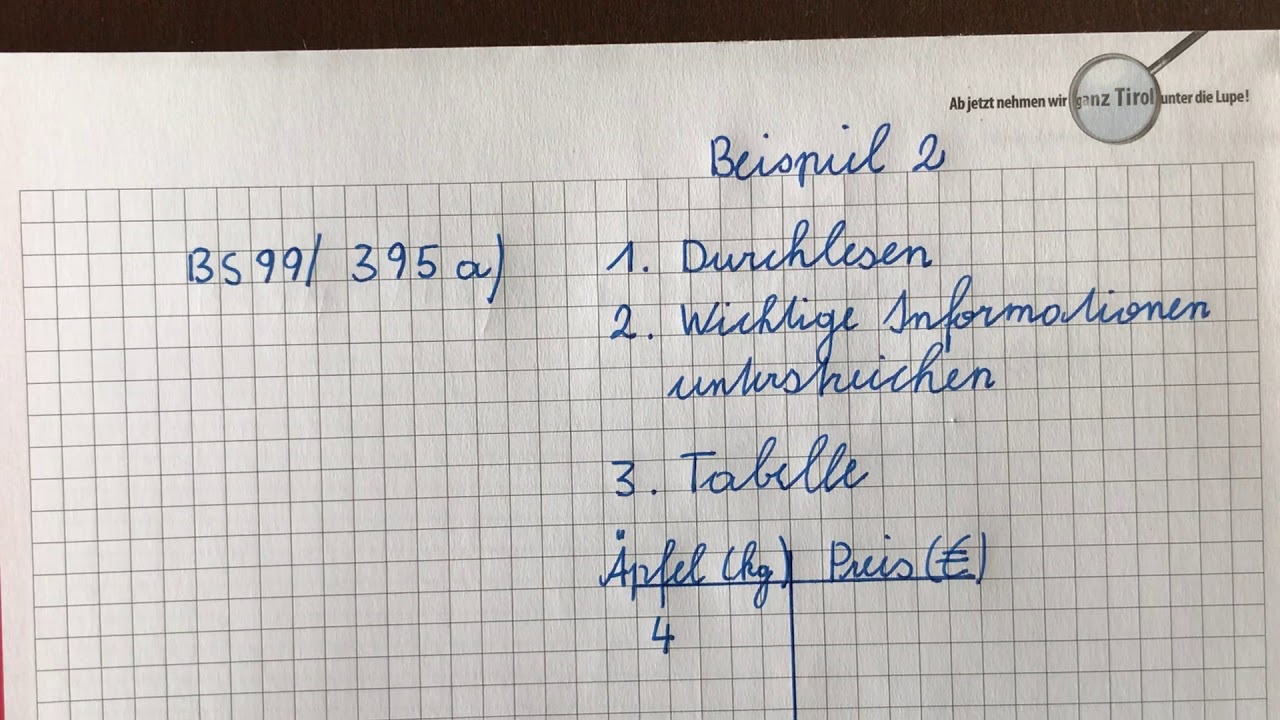 Ab jetzt nehmen wir ganz Tirol unter die Lupe!
Beispiel 2
BS 99/ 395 a)
1. Durchlesen
2. Wichtige Informationen
unterstreichen
3. Tabelle
Äpfel (kg) Preis (€)
4